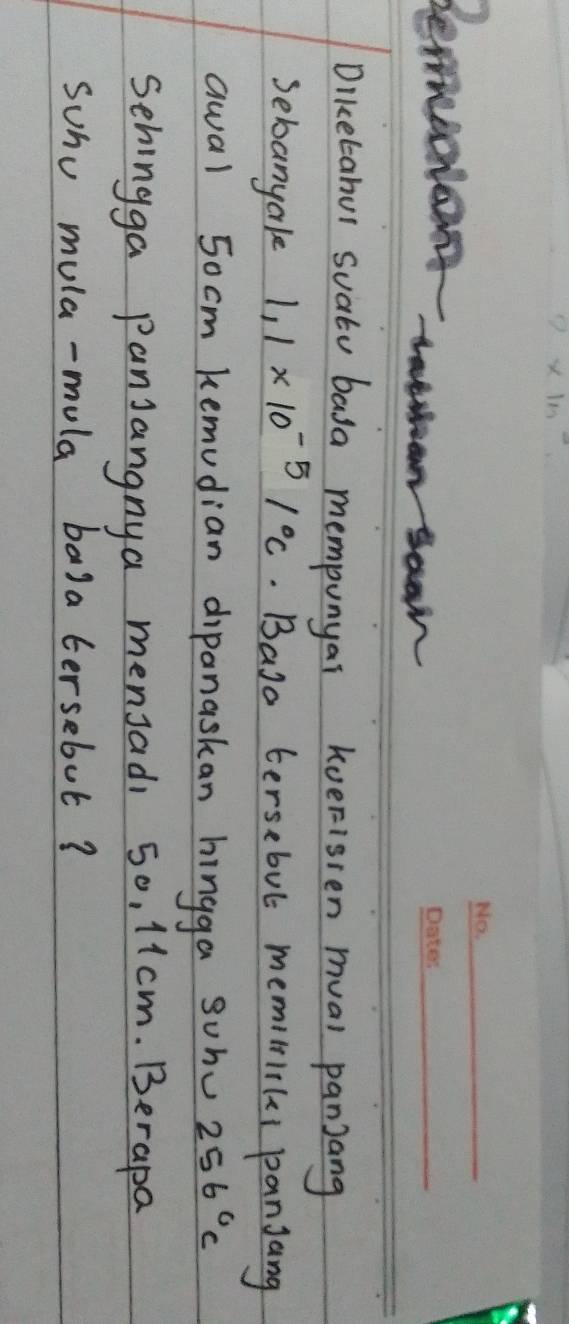 No.
Date:
Diketahui suatu baja mempunyai kuefisien muai panjang
sebanyak 1,1 × 10⁻⁵ /°c. Baja tersebut memiliki panjang
awal 50cm kemudian dipanaskan hingga suhu 256°c
Sehingga panjangnya menjadi 50,11cm. Berapa
suhu mula-mula baja tersebut?